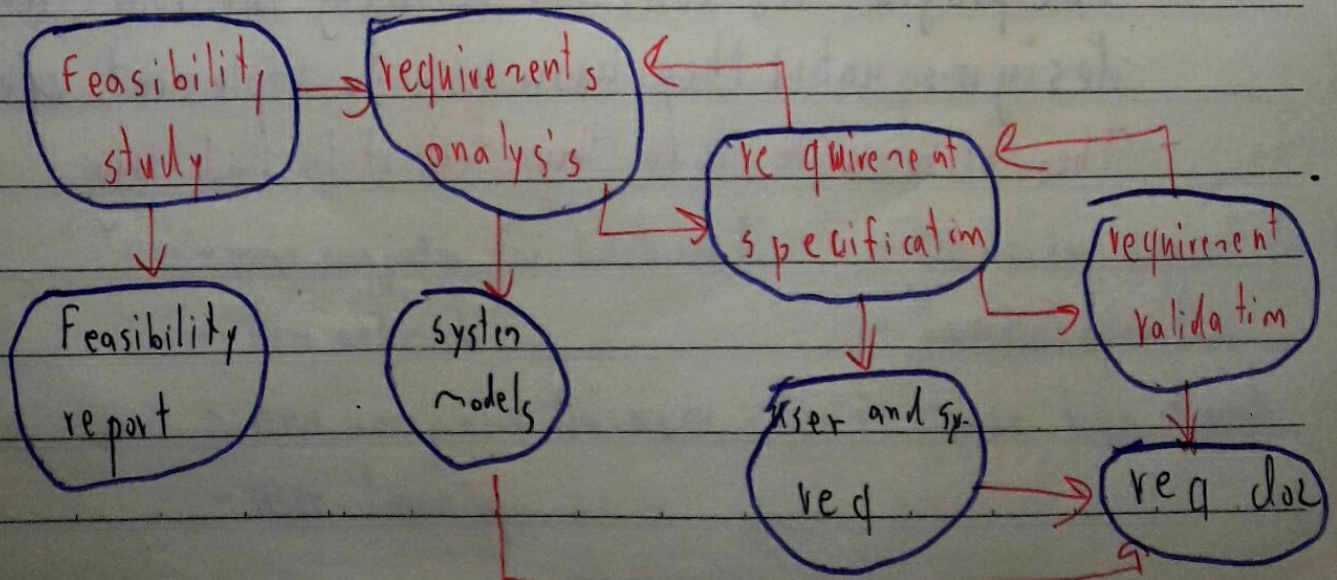 Feasibility
study
requirements
analysis
requirement
specification
requirement
validation
Feasibility
report
system
models
user and sy-
req
req doc